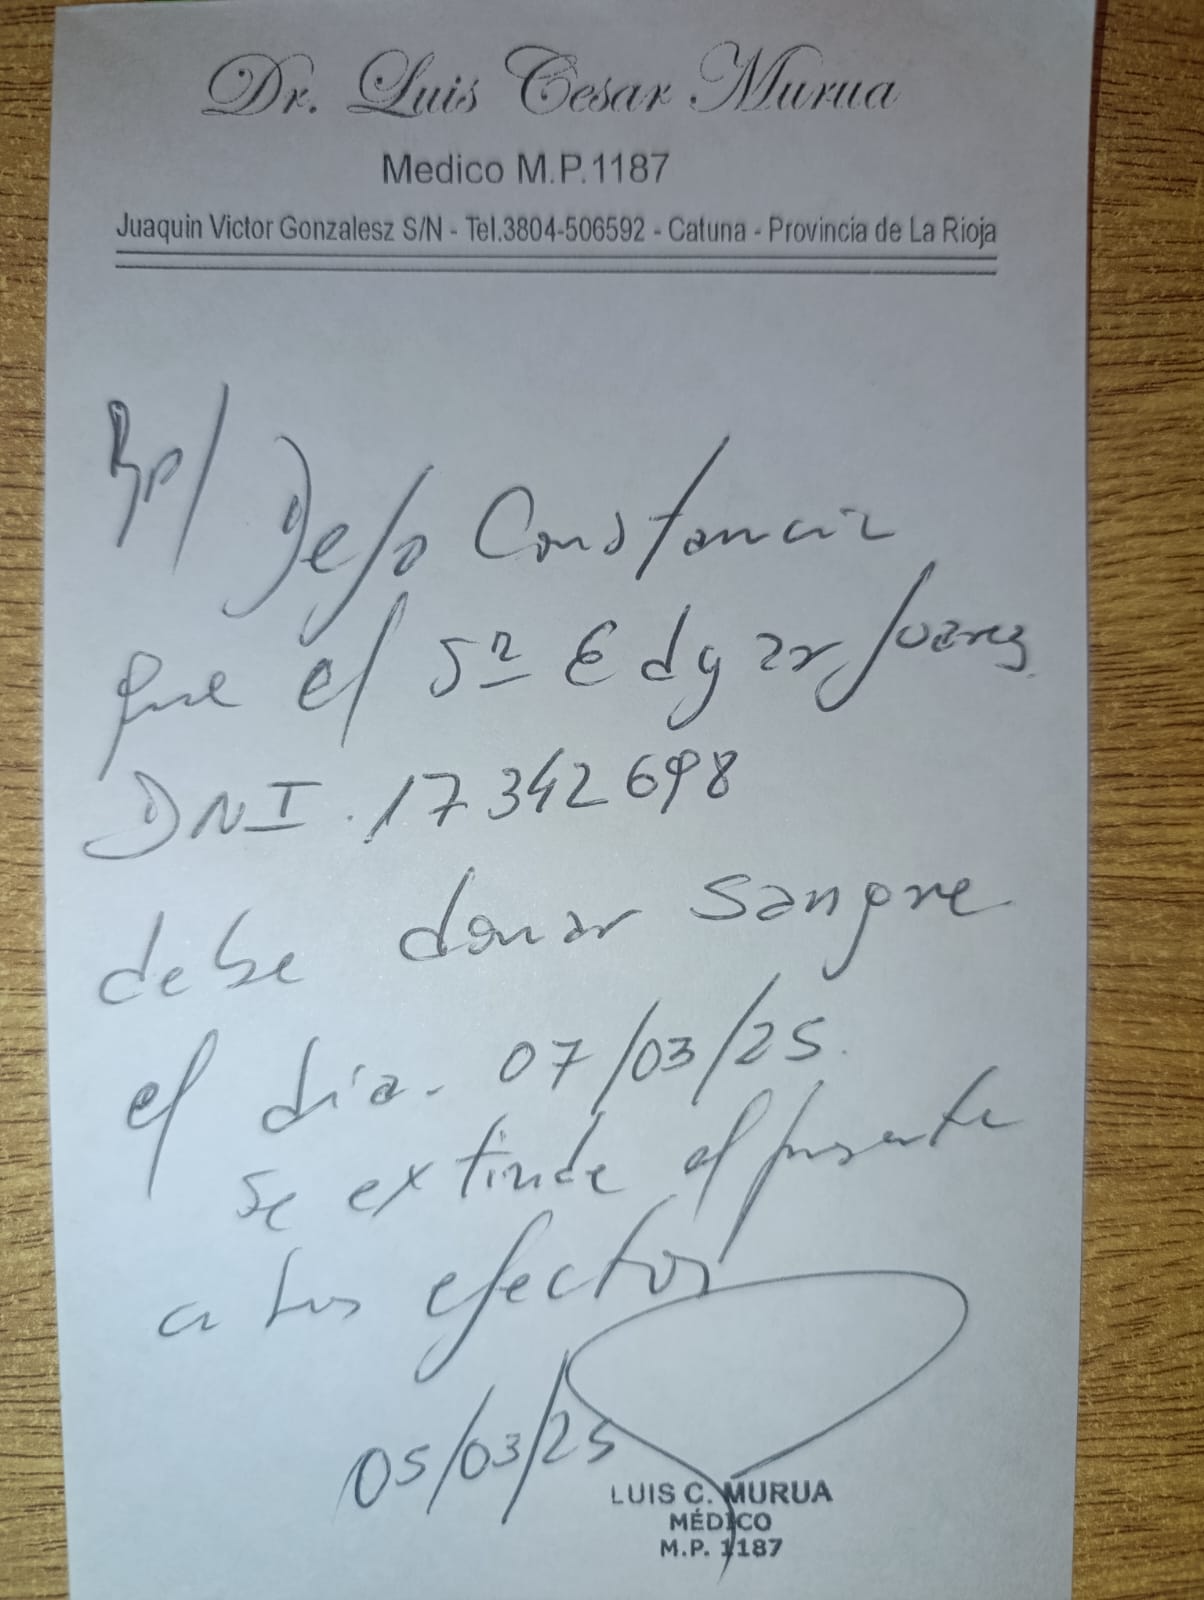 Dr. Luis Cesar Murua
Medico M.P.1187
Juaquin Victor Gonzalesz S/N - Tel.3804-506592 - Catuna - Provincia de La Rioja
Rp/ Dejo Constancia
que el Sr Edgar Juarez
DNI. 17342698
debe donar sangre
el día. 07/03/25.
Se extinde el presente
a los efectos
05/03/25
LUIS C. MURUA
MÉDICO
M.P. 1187